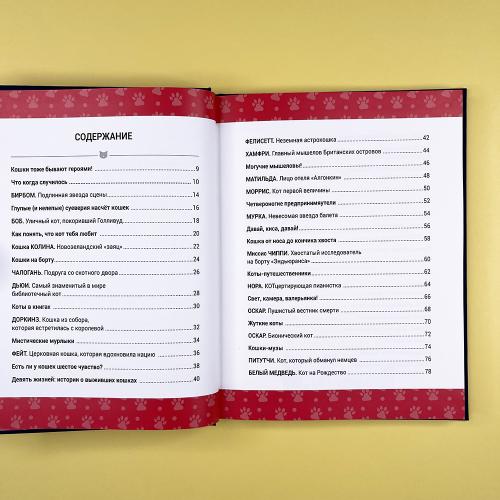 СОДЕРЖАНИЕ
Кошки тоже бывают героями! 9
Что когда случилось 10
БИРБОМ. Подлинная звезда сцены 14
Глупые (и нелепые) суеверия насчёт кошек 16
БОБ. Уличный кот, покоривший Голливуд 18
Как понять, что кот тебя любит 20
Кошка КОЛИНА. Новозеландский «заяц» 22
Кошки на борту 24
ЧАЛОГАНЬ. Подруга со скотного двора 26
ДЬЮИ. Самый знаменитый в мире
библиотечный кот 28
Коты в книгах 30
ДОРКИНЗ. Кошка из собора,
которая встретилась с королевой 32
Мистические мурлыки 34
ФЕЙТ. Церковная кошка, которая вдохновила нацию 36
Есть ли у кошек шестое чувство? 38
Девять жизней: истории о выживших кошках 40
ФЕЛИСЕТТ. Неземная астрокошка 42
ХАМФРИ. Главный мышелов Британских островов 44
Могучие мышеловы! 46
МАТИЛЬДА. Лицо отеля «Алгонкин» 48
МОРРИС. Кот первой величины 50
Четвероногие предприниматели 52
МУРКА. Невесомая звезда балета 54
Давай, киса, давай! 56
Кошка от носа до кончика хвоста 58
Миссис ЧИППИ. Хвостатый исследователь
на борту «Эндьюранса» 60
Коты-путешественники 62
НОРА. КОТцертирующая пианистка 64
Свет, камера, валерьянка! 66
ОСКАР. Пушистый вестник смерти 68
Жуткие коты 70
ОСКАР. Бионический кот 72
Кошки-музы 74
ПИТУТЧИ. Кот, который обманул немцев 76
БЕЛЫЙ МЕДВЕДЬ. Кот на Рождество 78